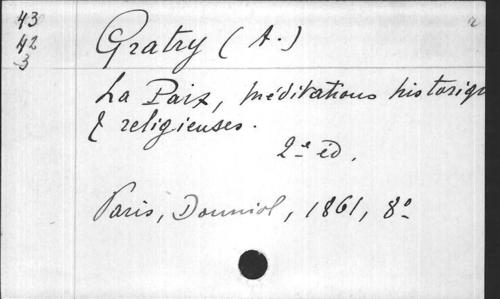 43
42
3
Gratry (A.)
La Paix, méditations historiqu
& religieuses.
2e éd.
Paris, Douniol, 1861, 8º